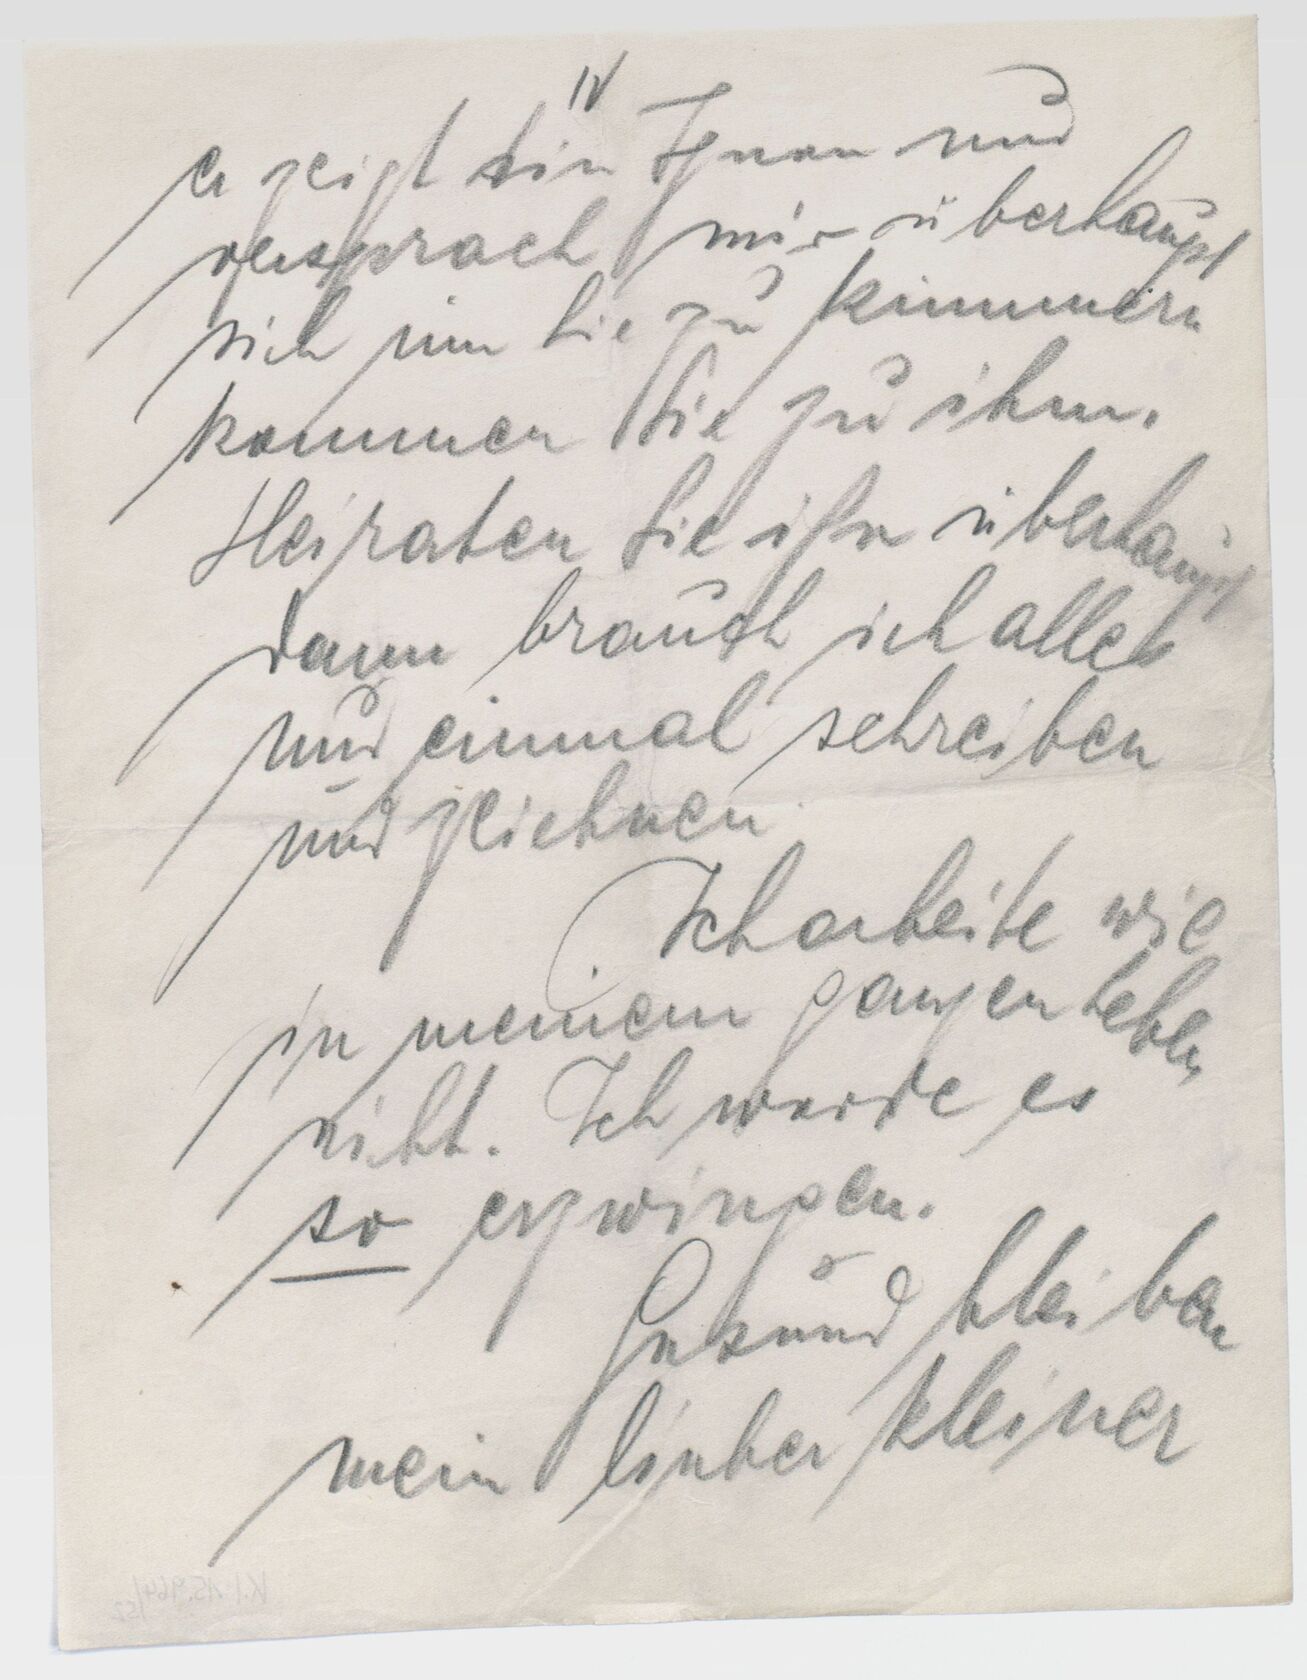 IV
er zeigt sie Ihnen und
versprach mir überhaupt
sich um Sie zu kümmern
kommen Sie zu ihm.
Heiraten Sie ihn überhaupt
dann brauch ich alles
nur einmal schreiben
und zeichnen
Ich arbeite wie
in meinem ganzen Leben
nicht. Ich werde es
so erzwingen.
Gesund bleiben
mein lieber kleiner